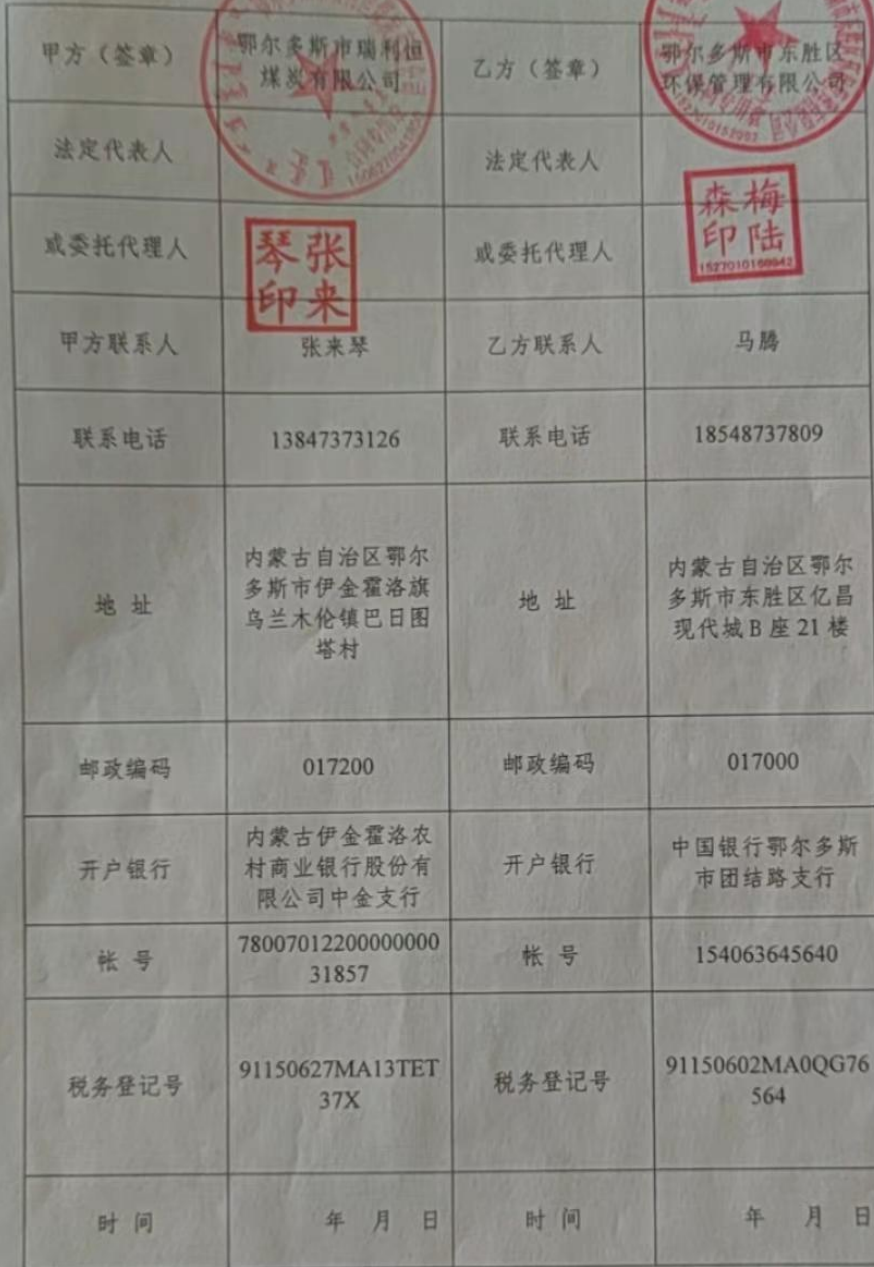 甲方（签章）
鄂尔多斯市瑞利恒
煤炭有限公司
乙方（签章）
鄂尔多斯市东胜区
环保管理有限公司
法定代表人
法定代表人
或委托代理人
琴张
印来
或委托代理人
森梅
印陆
甲方联系人
张来琴
乙方联系人
马腾
联系电话
13847373126
联系电话
18548737809
地 址
内蒙古自治区鄂尔
多斯市伊金霍洛旗
乌兰木伦镇巴日图
塔村
地 址
内蒙古自治区鄂尔
多斯市东胜区亿昌
现代城 B 座 21 楼
邮政编码
017200
邮政编码
017000
开户银行
内蒙古伊金霍洛农
村商业银行股份有
限公司中金支行
开户银行
中国银行鄂尔多斯
市团结路支行
帐 号
78007012200000000
31857
帐 号
154063645640
税务登记号
91150627MA13TET
37X
税务登记号
91150602MA0QG76
564
时 间
年 月 日
时 间
年 月 日